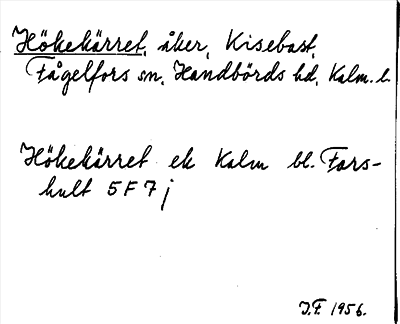 Hökekärret, åker, Kisebast,
Fågelfors sn, Handbörds hd, Kalm. l.
Hökekärret ek Kalm bl. Fars-
hult 5 F 7 j
J.F. 1956.